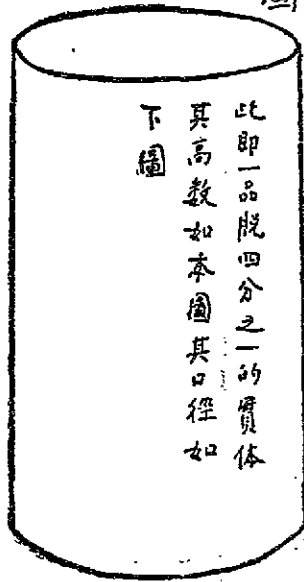 此即一品脫四分之一的實体
其高数如本圖其口徑如
下圖